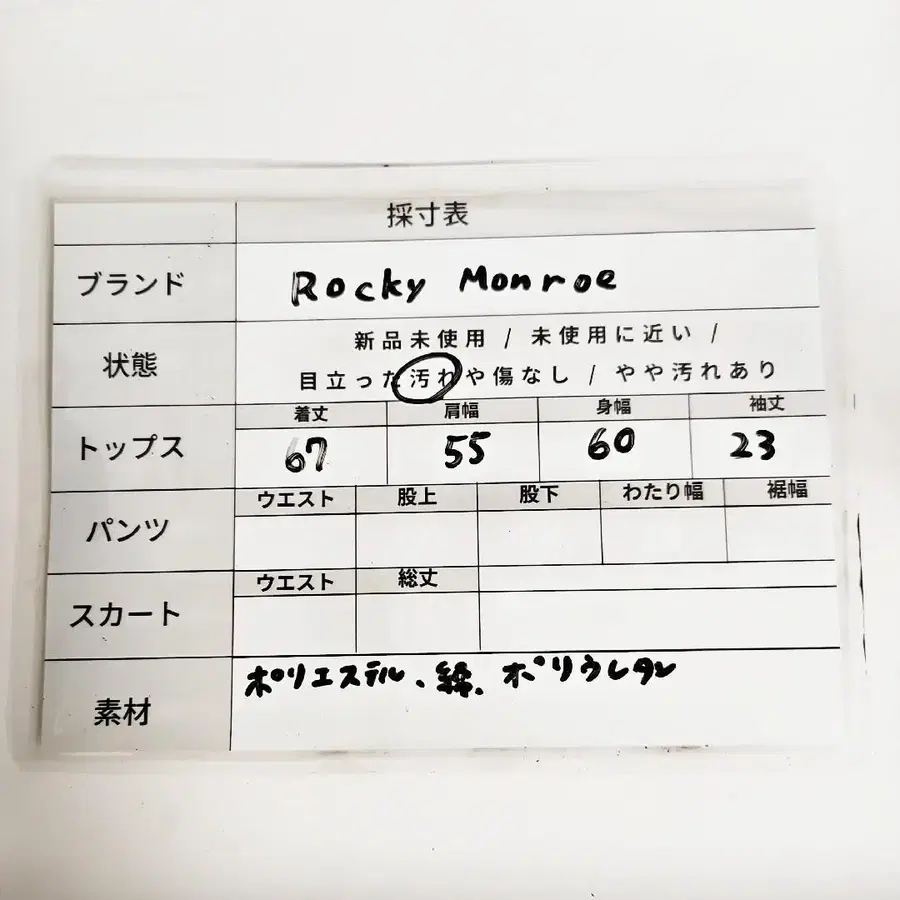 採寸表
ブランド Rocky Monroe
状態 新品未使用 / 未使用に近い /
目立った汚れや傷なし / やや汚れあり
着丈 肩幅 身幅 袖丈
トップス 67 55 60 23
ウエスト 股上 股下 わたり幅 裾幅
パンツ
ウエスト 総丈
スカート
素材 ポリエステル、綿、ポリウレタン